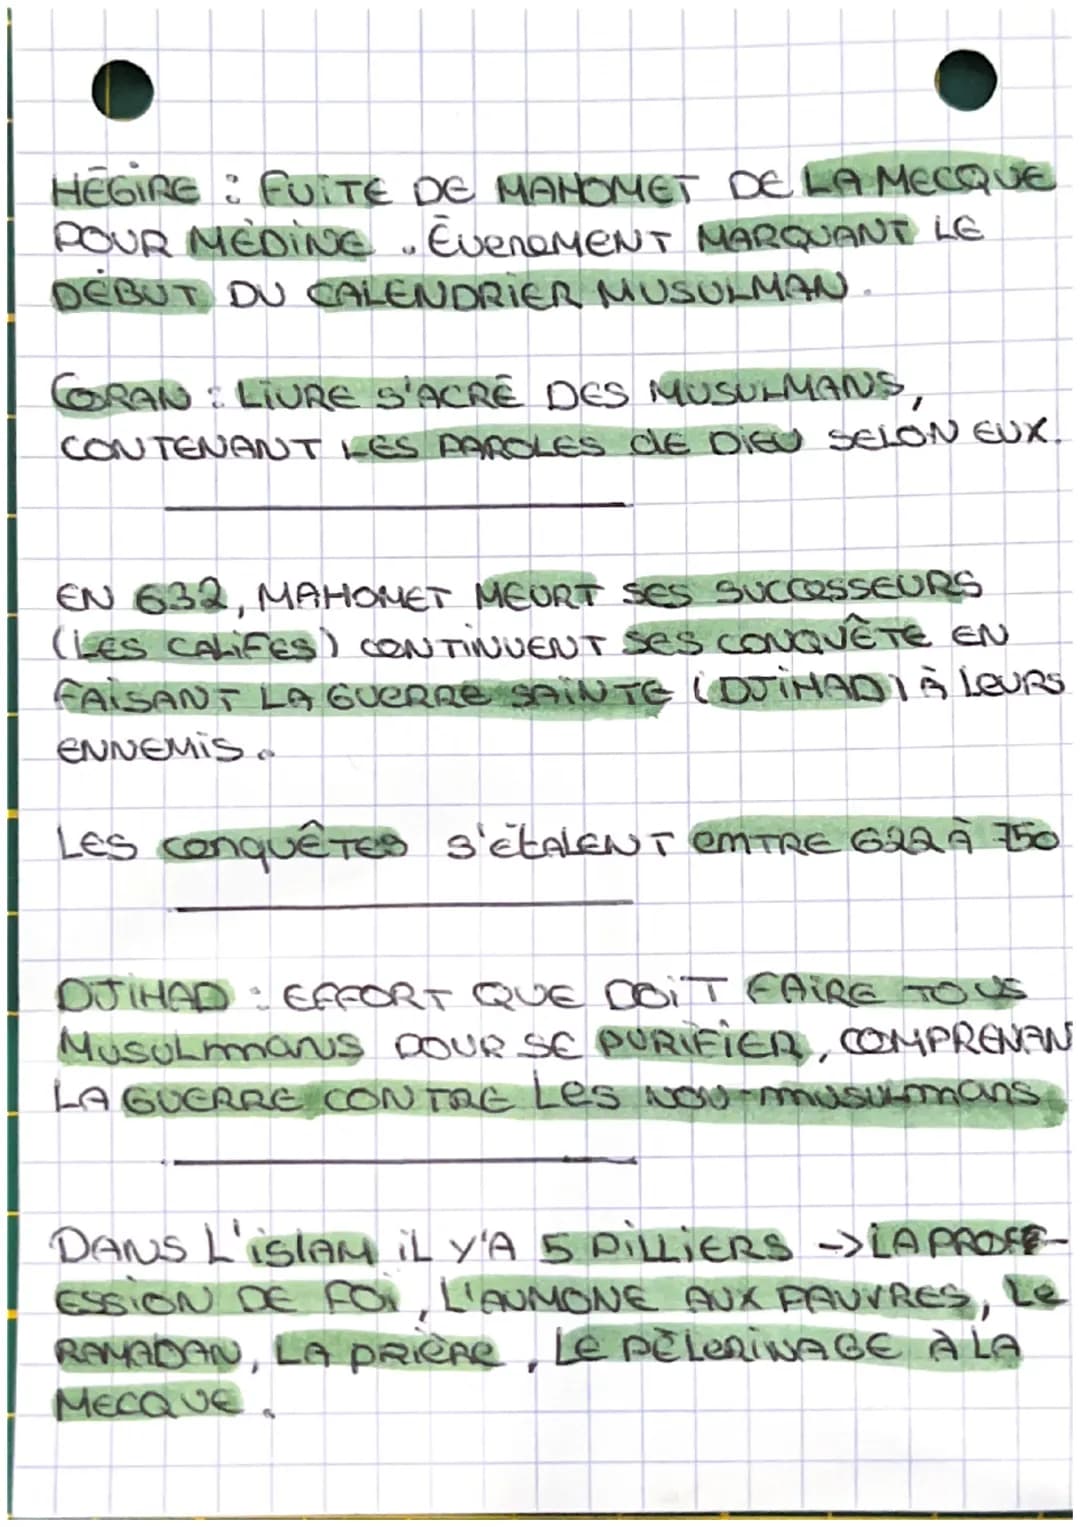 HÉGIRE : FUITE DE MAHOMET DE LA MECQUE
POUR MÉDINE. ÉVENEMENT MARQUANT LE
DÉBUT DU CALENDRIER MUSULMAN.
CORAN : LIVRE S'ACRÉ DES MUSULMANS,
CONTENANT LES PAROLES DE DIEU SELON EUX.
EN 632, MAHOMET MEURT SES SUCCESSEURS
(LES CALIFES) CONTINUENT SES CONQUÊTE EN
FAISANT LA GUERRE SAINTE (DJIHAD) À LEURS
ENNEMIS.
LES CONQUÊTES S'ÉTALENT EMTRE 622 À 750
DJIHAD : EFFORT QUE DOIT FAIRE TOUS
MUSULmmANS POUR SE PURIFIER, COMPRENAN
LA GUERRE CONTRE LES NON-MUSULMANS
DANS L'ISLAM IL Y'A 5 PILLIERS -> LA PROFE-
ESSION DE FOI, L'AUMONE AUX PAUVRES, LE
RAMADAN, LA PRIÈRE, LE PÈLERINAGE À LA
MECQUE.